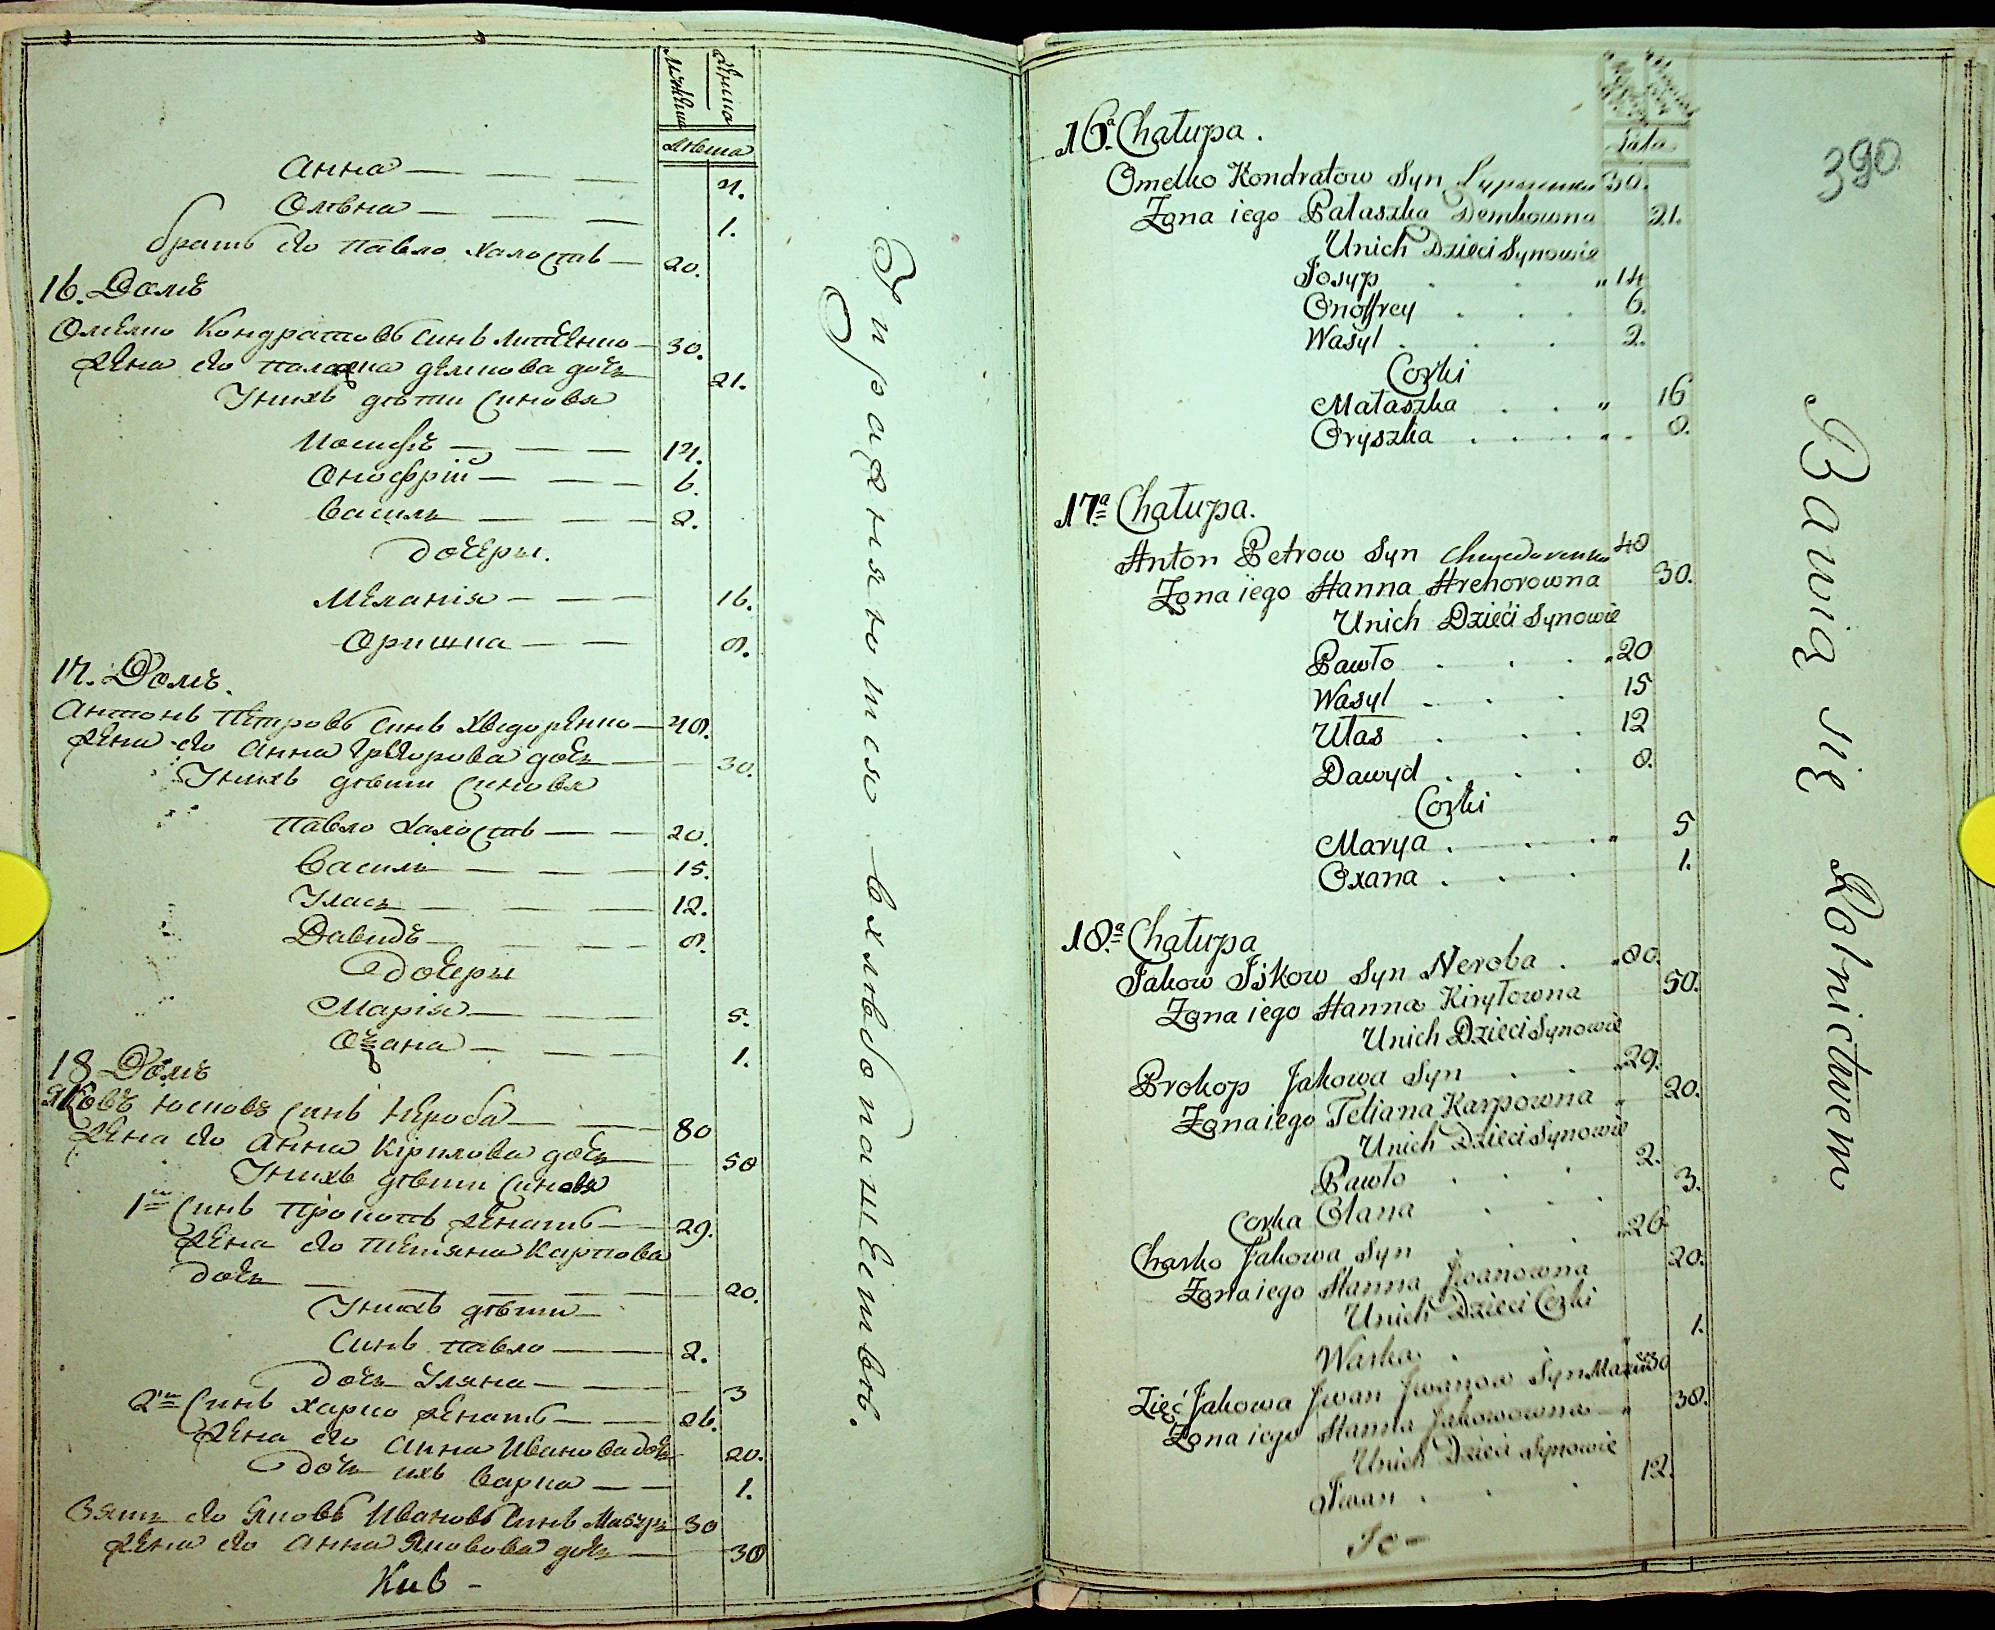 Мужеска
Женска
Лѣта
Анна — — — 4.
Олѣна — — — 1.
братъ его Павло холостъ — 20.
16. Домъ
Омелко Кондратовъ синъ — 30.
Жена его демкова дочь 21.
У нихъ дѣти синовя
Иосифъ — — — 14.
Онофрій — — — 6.
Василь — — — 2.
дочеры.
Меланія — — — 16.
Оришка — — 8.
17. Домъ.
Антонъ Петровъ синъ Хведоренко — 48.
Жена его Анна Грегорова дочь — 30.
У нихъ дѣти синовя
Павло холостъ — — 20.
Василь — — — 15.
Уласъ — — — 12.
Давидъ — — — 8.
дочеры
Марія — — — 5.
Оѯана — — — 1.
18 Домъ
Яковъ Юсковъ синъ Нероба — — 80
Жена его Анна Кірилова дочь — 50
У нихъ дѣти синовя
1й Синъ Прокопъ женатъ — 29.
Жена его Тетяна Карпова
дочь — — — 20.
У нихъ дѣти —
Синъ Павло — — 2.
дочь Уляна — — 3
2й Синъ Харко женатъ — — 26.
Жена его Анна Иванова дочь 20.
дочь ихъ Варка — — 1.
Зять его Яковъ Ивановъ синъ Мазуръ 30
Жена его Анна Яковова дочь — 30
Кив -
Упражняются в хлѣбопашествѣ.
390
Lata
16.ª Chałupa.
Omelko Kondratow Syn 30.
Zona iego Pałaszka Demkowna 21.
Unich Dzieci Synowie
Josyp . . „ 14
Onoffrey . . . 6.
Wasyl . . . 2.
Corki
Małaszka . . „ 16
Oryszka . . . . . 8.
17.ª Chałupa.
Anton Petrow Syn Chwedorenko 48
Zona iego Hanna Hrehorowna 30.
Unich Dzieci Synowie
Pawło . . . „ 20
Wasyl . . . 15
Ułas . . . 12
Dawyd . . . 8.
Corki
Marya . . . „ 5
Oxana . . . 1.
18.ª Chałupa
Jakow Jskow Syn Neroba . „ 80.
Zona iego Hanna Kiryłowna 50.
Unich Dzieci Synowie
Prokop Jakowa Syn . . „ 29.
Zona iego Tetiana Karpowna „ 20.
Unich Dzieci Synowie
Pawło . . . 2.
Corka Olana . . 3.
Charko Jakowa Syn . . . „ 26
Zona iego Hanna Jwanowna 20.
Unich Dzieci Corki
Warka. . . „ 1.
Zięć Jakowa Jwan Jwanow Syn Mazur 30
Zona iego Hanna Jakowowna — „ 30.
Unich Dzieci Synowie
Jwan . . . 12.
Bawią się Rolnictwem